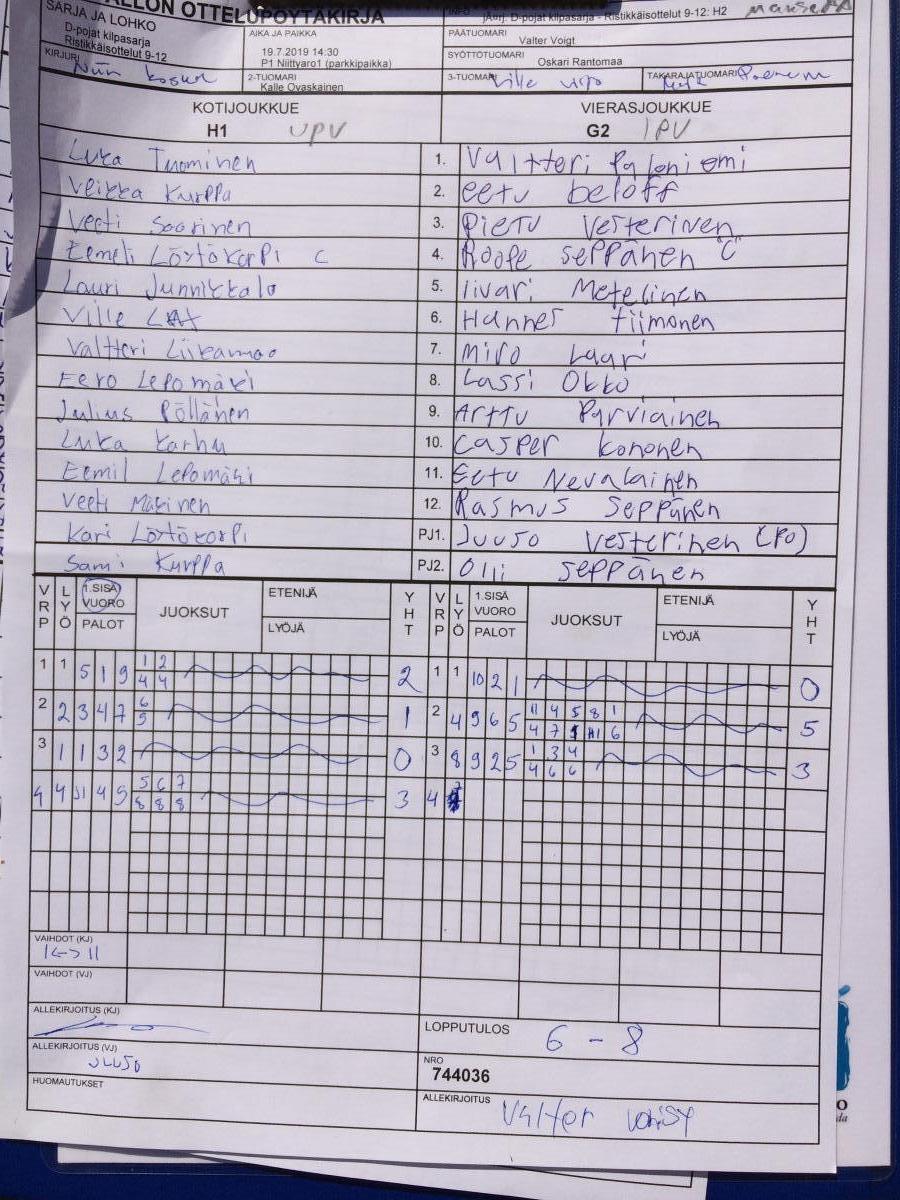 ALLON OTTELUPÖYTÄKIRJA
SARJA JA LOHKO
D-pojat kilpasarja
Ristikkäisottelut 9-12
AIKA JA PAIKKA
19.7.2019 14:30
P1 Niittyaro1 (parkkipaikka)
INFO
D-pojat kilpasarja - Ristikkäisottelut 9-12: H2
PÄÄTUOMARI
Valter Voigt
SYÖTTÖTUOMARI
Oskari Rantomaa
KIRJURI
2-TUOMARI
Kalle Ovaskainen
3-TUOMARI Ville
TAKARAJATUOMARI
KOTIJOUKKUE VIERASJOUKKUE
H1 UPV G2 IPV
Luka Tuominen 1. Valtteri Paloniemi
Veikka Kurppa 2. eetu beloff
Veeti Saarinen 3. Pietu Vesterinen
Eemeli Löytökorpi C 4. Roope Seppänen C
Lauri Junnikkala 5. Iivari Metelinen
Ville 6. Hannes Tiimonen
Valtteri Liikamaa 7. Miro Laari
Eero Lepomäki 8. Lassi Okko
Julius Pöllänen 9. Arttu Parviainen
Luka Karhu 10. Casper Kononen
Eemil Lepomäki 11. Eetu Nevalainen
Veeti Mäkinen 12. Rasmus Seppänen
Kari Löytökorpi PJ1. Juuso Vesterinen (PO)
Sami Kurppa PJ2. Olli Seppänen
VRP LYÖ 1.SISÄ VUORO PALOT JUOKSUT ETENIJÄ LYÖJÄ YHT VRP LYÖ 1.SISÄ VUORO PALOT JUOKSUT ETENIJÄ LYÖJÄ YHT
1 1 5 1 9 1 2 2 1 1 10 2 1 0
4 4
2 2 3 4 7 6 1 2 4 9 6 5 11 4 5 8 1 5
5 4 7 11 6
3 1 1 3 2 0 3 8 9 2 5 1 3 4 3
4 6 6
4 4 11 4 9 5 6 7 3 4 7
8 8 8
VAIHDOT (KJ)
VAIHDOT (VJ)
ALLEKIRJOITUS (KJ)
LOPPUTULOS 6 - 8
ALLEKIRJOITUS (VJ)
Juuso
NRO
744036
HUOMAUTUKSET
ALLEKIRJOITUS
Valter